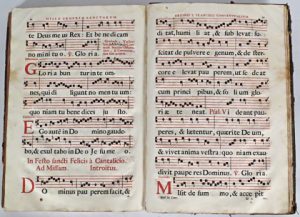 te Deus me us Rex: Et be ne dicam
no mi ni tu o. ℣. Glo ria.
G
lo ria bun tur in te om-
nes, qui di ligunt no men tu um:
quo niam tu be ne dices ju sto.
E
Go autē in Do mino gaudo
o, & exul tabo in De o Je su me o.
In Festo sancti Felicis à Cantalicio.
Ad Missam. Introitus.
D
O minus pau perem facit, &
di tat, humi li at, & sub levat su-
scitat de pulvere egenum, & de ster-
core e levat pau perem, ut se de at
cum princi pibus, & so li um glo-
riæ te neat. Psal. Vi deant pau-
peres, & lætentur, quærite De um,
& vivet anima vestra: quo niam exau-
divit pauperes Dominus. Glo ria.
M
isit de sum mo, & acce pit